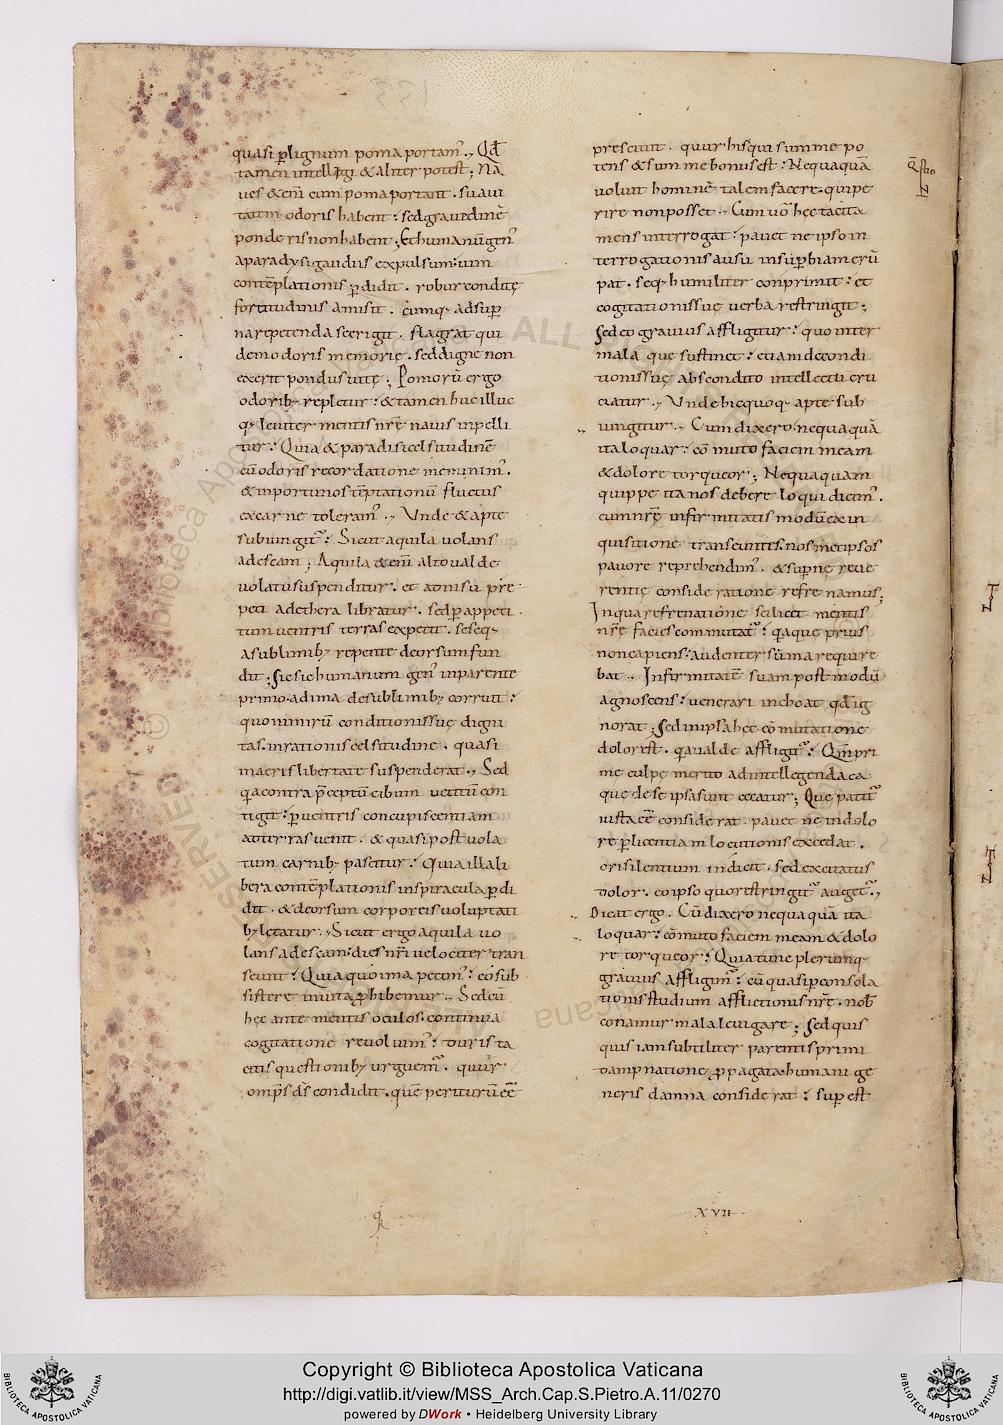 quasi p̲lignum poma portam᾽. Qd̄
tamen intellegi & aliter potest; Na
ues & eni͞ cum poma portant. suaui
tatem odoris habent: sed grauedinē
ponderis non habent; Et humanū gen᾽
a paradysi gaudiis expulsum: uim
contēplationis p̲didit. robur conditę
fortitudinis amisit. cumq; ad sup̲
na repetenda se erigit. flagrat qui
dem odoris memorię. sed digne non
exerit pondus uitę; Pomorū ergo
odorib; repletur: & tamen huc illuc
q; leuiter mentis nrę̄ nauis inpelli
tur: Quia & paradisi celsitudinē
cū odoris recordatione meminim᾽.
& inportunos tēptationū fluctus
ex carne toleram᾽. Unde & apte
subiungit᾽: Sicut aquila uolans
ad escam; Aquila & eni͞ alto ualde
uolatu suspenditur. et adnisu prę
peti ad ethera libratur. sed p̲ appeti
tum uentris terras expetit. seseq;
a sublimib; repente deorsum fun
dit; Sic sic humanum gen᾽ in parente
primo. ad ima de sublimib; corruit:
quo nimirū conditionis suę digni
tas. in rationis celsitudine. quasi
in aeris libertate suspenderat. Sed
qa contra p̄ceptū cibum uetitū con
tigit: p̲ uentris concupiscentiam
ad terras uenit. & quasi post uola
tum carnib; pascitur: Quia illa li
bera contēplationis inspiracula p̲di
dit. & deorsum corporeis uoluptati
b; lętatur. Sicut ergo aquila uo
lans ad escam: dies nr̄i uelociter tran
seunt: Quia quo ima petim᾽: eo sub
sistere in uita p̲hibemur. Sed cū
hęc ante mentis oculos. continua
cogitatione reuoluim᾽: duris ta
citis questionib; urguem᾽. quur
omp̄s d̄s condidit. quē periturū eē
presciuit. quur his qui summe po
tens & summe bonus est: Nequaquā
uoluit hominē talem facere. qui pe
rire non posset. Cum uo͞ hęc tacita
mens interrogat: pauet ne ipso in
terrogationis ausu in sup̲biam erū
pat. seq; humiliter conprimit: et
cogitationis suę uerba restringit;
Sed eo grauius affligitur: quo inter
mala quę sustinet: etiam de condi
tionis suę abscondito intellectu cru
ciatur. Unde hic quoq; apte sub
iungitur. Cum dixero. nequaquā
ita loquar: cōmuto faciem meam
& dolore torqueor; Nequaquam
quippe ita nos debere loqui dicim᾽.
cum nrę̄ infirmitatis modū ex in
quisitione transeuntes. nosmetipsos
pauore reprehendim᾽. & sup̲nę reue
rentię consideratione refrenamus;
In qua refrenatione scilicet mentis
nrę̄ facies commutat᾽: qa que prius
non capiens: audenter sūma require
bat. Infirmitatē suam post modū
agnoscens: uenerari inchoat qd̄ ig
norat; Sed in ipsa hęc cōmutatione
dolor est. qa ualde affligit᾽: Qm̄ pri
mę culpę merito ad intellegenda ea
quę de se ipsa sunt cecatur; Quę patit᾽
iusta eē considerat. pauet ne in dolo
re p̲ licentiam locutionis excedat.
ori silentium indicit. sed excitatus
dolor. eo ipso quo restringit᾽ auget᾽.
Dicat ergo. Cū dixero nequaquā ita
loquar: cōmuto faciem meam & dolo
re torqueor: Quia tunc plerumq;
grauius affligim᾽: cū quasi p̲ consola
tionis studium afflictionis nrę̄. nob̄
conamur mala leuigare; Sed quis
quis iam subtiliter parentis primi
dampnatione p̲pagata. humani ge
neris damna considerat: sup̲ est
q̄stio
XVII
Copyright © Biblioteca Apostolica Vaticana
http://digi.vatlib.it/view/MSS_Arch.Cap.S.Pietro.A.11/0270
powered by DWork • Heidelberg University Library
BIBLIOTECA APOSTOLICA VATICANA
BIBLIOTECA APOSTOLICA VATICANA